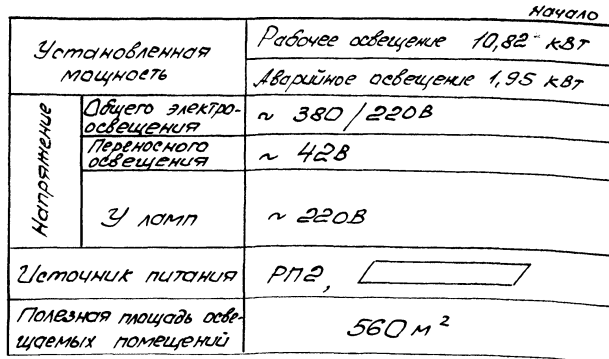 Начало
Установленная мощность
Рабочее освещение 10,82 кВт
Аварийное освещение 1,95 кВт
Напряжение
Общего электро-
освещения
~ 380/220В
Переносного
освещения
~ 42В
У ламп
~ 220В
Источник питания
РП2,
Полезная площадь осве-
щаемых помещений
560 м²